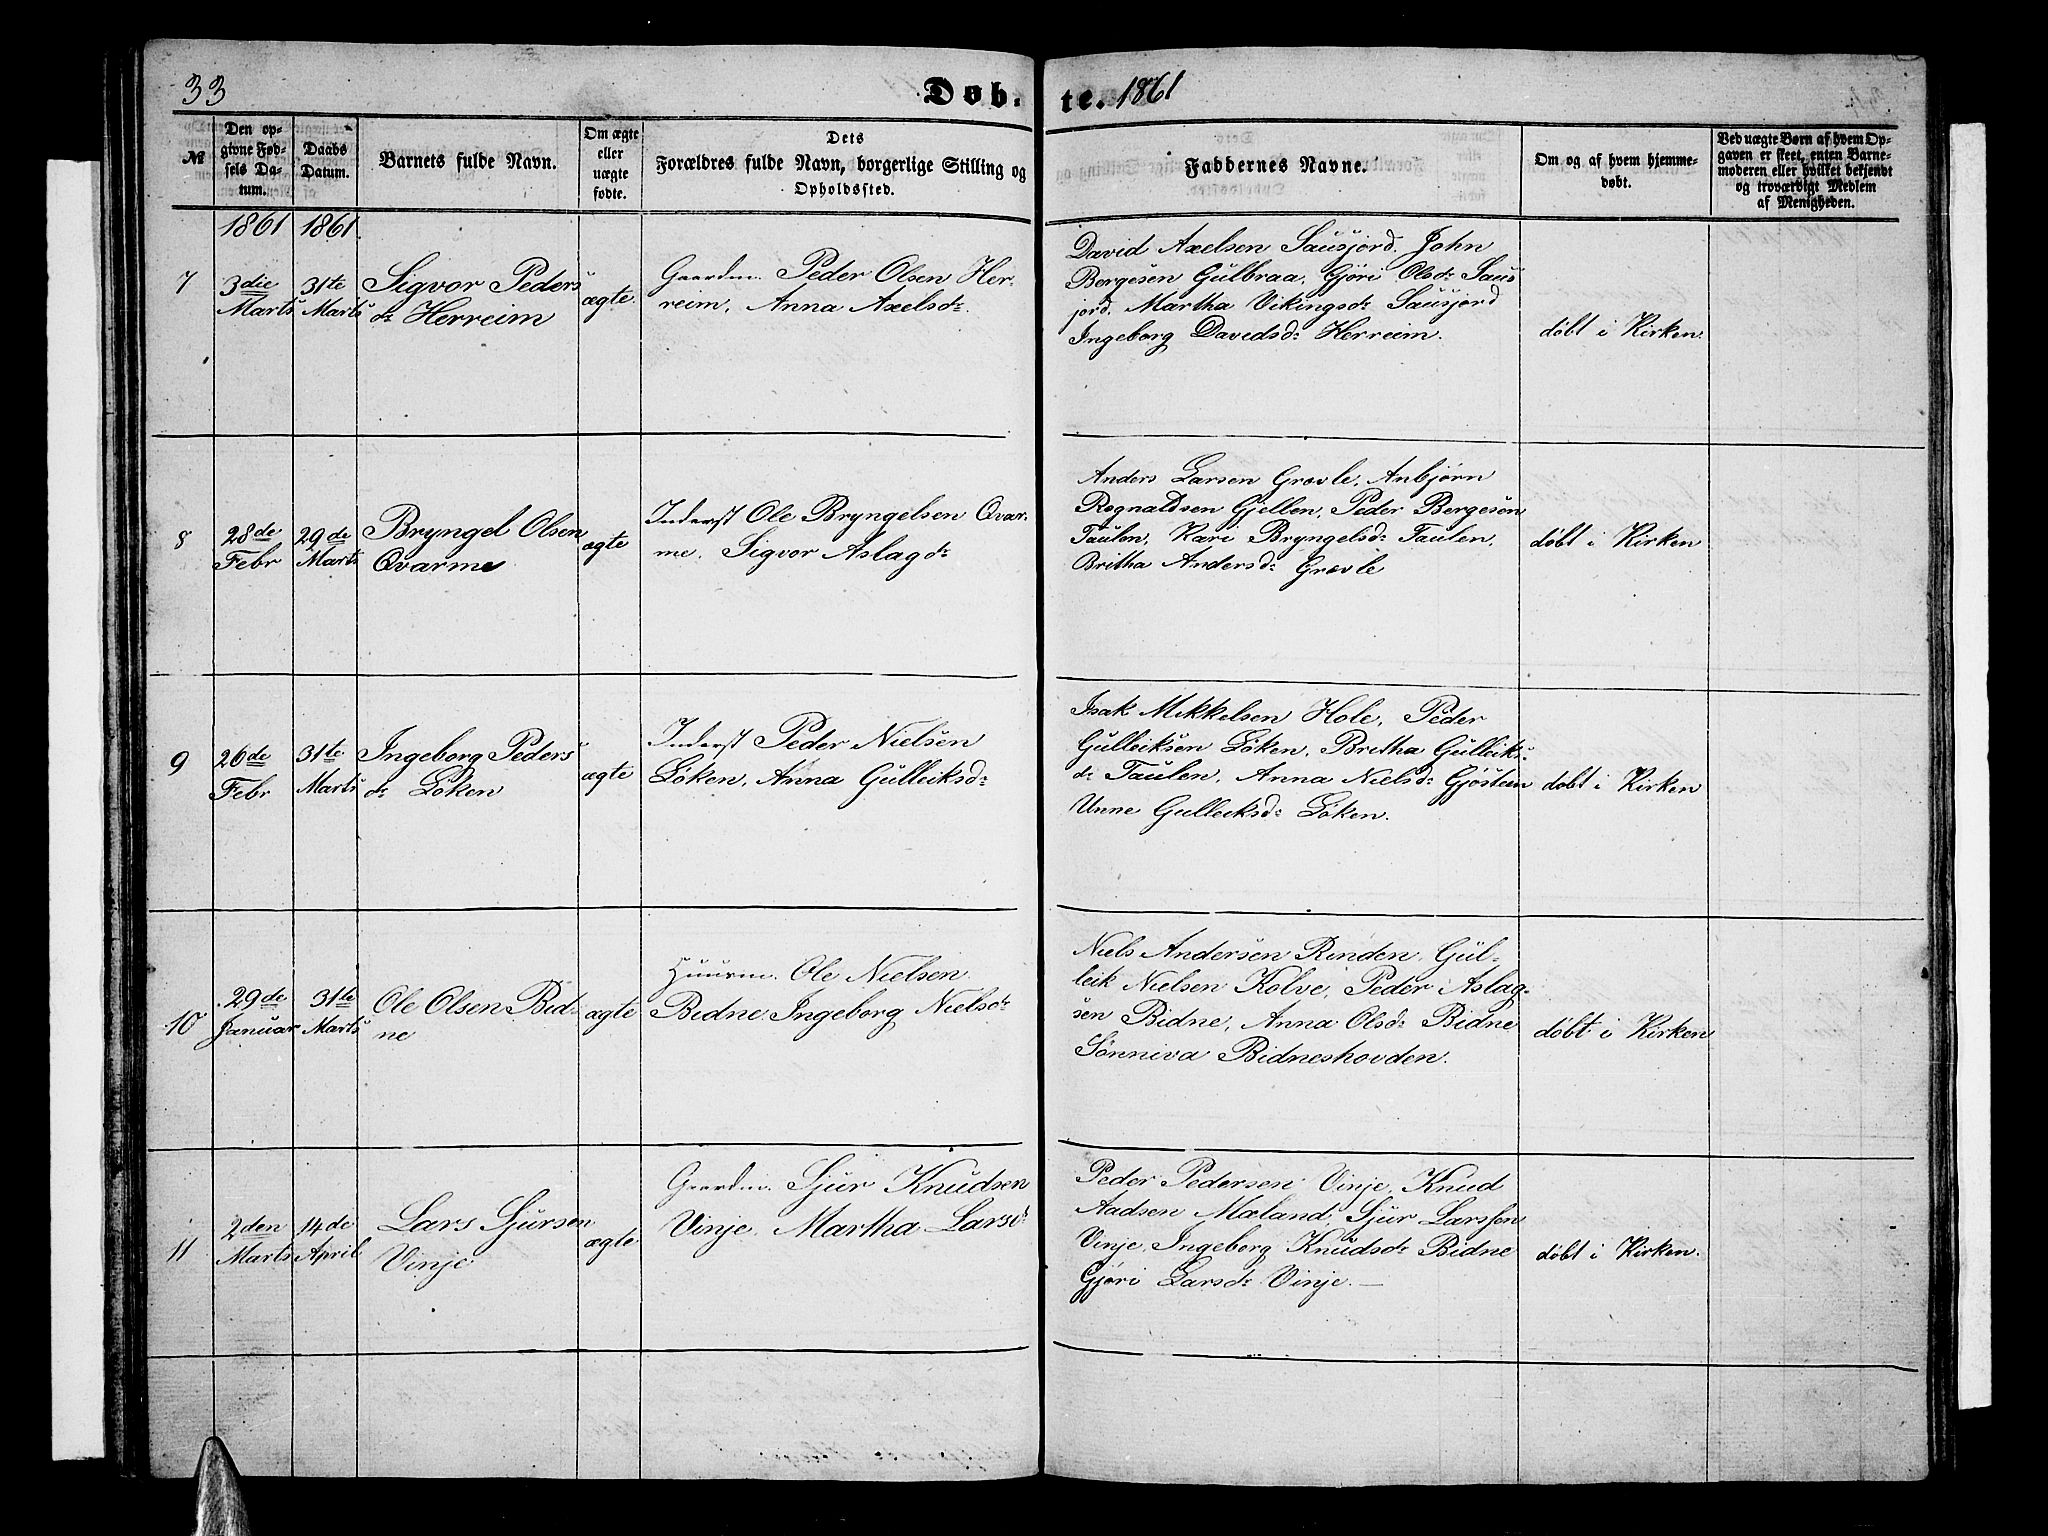 33
Døb- te. 1861
№
Den op-
givne Fød-
sels Da-
tum.
Daabs
Datum.
Barnets fulde Navn.
Om ægte
eller
uægte
fødte.
Dets
Forældres fulde Navn, borgerlige Stilling og
Opholdssted.
Faddernes Navne.
Om og af hvem hjemme-
døbt.
Ved uægte Børn af hvem Op-
gaven er skeet, enten Barne-
moderen eller hvilket bekjendt
og troværdigt Medlem
af Menigheden.
1861 1861.
7
3die
Marts
31te
Marts
Sigvor Peders
dr Herreim
ægte.
Gaardm. Peder Olsen Her-
reim, Anna Axelsdr.
David Axelsen Sausjord. John
Bergesen Gulbraa, Gjøri Olsdr Saus
jord. Martha Vikingsdr Sausjord
Ingeborg Davidsdr Herreim.
døbt i Kirken.
8
28de
Febr
29de
Marts
Bryngel Olsen
Qvarme
ægte
Inderst Ole Bryngelsen Qvar-
me. Sigvor Aslagdr
Anders Larsen Grovle, Anbjørn
Rognaldsen Gjellen, Peder Bergesen
Taulen, Kari Bryngelsdr Taulen.
Britha Andersdr Grovle
døbt i Kirken
9
26de
Febr
31te
Marts
Ingeborg Peders
dr Löken
ægte
Inderst Peder Nielsen
Löken, Anna Gulleiksdr
Isak Mikkelsen Hole, Peder
Gulleiksen Löken, Britha Gulleiks
dr Taulen, Anna Nielsdr Gjöstein
Unne Gulleiksdr Löken.
døbt i Kirken
10
29de
Januar
31te
Marts
Ole Olsen Bid-
ne
ægte
Huusm. Ole Nielsen
Bidne Ingeborg Nielsdr
Niels Andersen Rinden, Gul-
leik Nielsen Kolve, Peder Aslag-
sen Bidne, Anna Olsdr Bidne
Sönniva Bidneshovden.
døbt i Kirken
11
2den
Marts
14de
April
Lars Sjursen
Vinje
ægte
Gaardm. Sjur Knudsen
Vinje, Martha Larsdr
Peder Pedersen Vinje, Knud
Aadsen Mæland, Sjur Larssen
Vinje, Ingeborg Knudsdr Bidne
Gjøri Larsdr Vinje. —
døbt i Kirken.